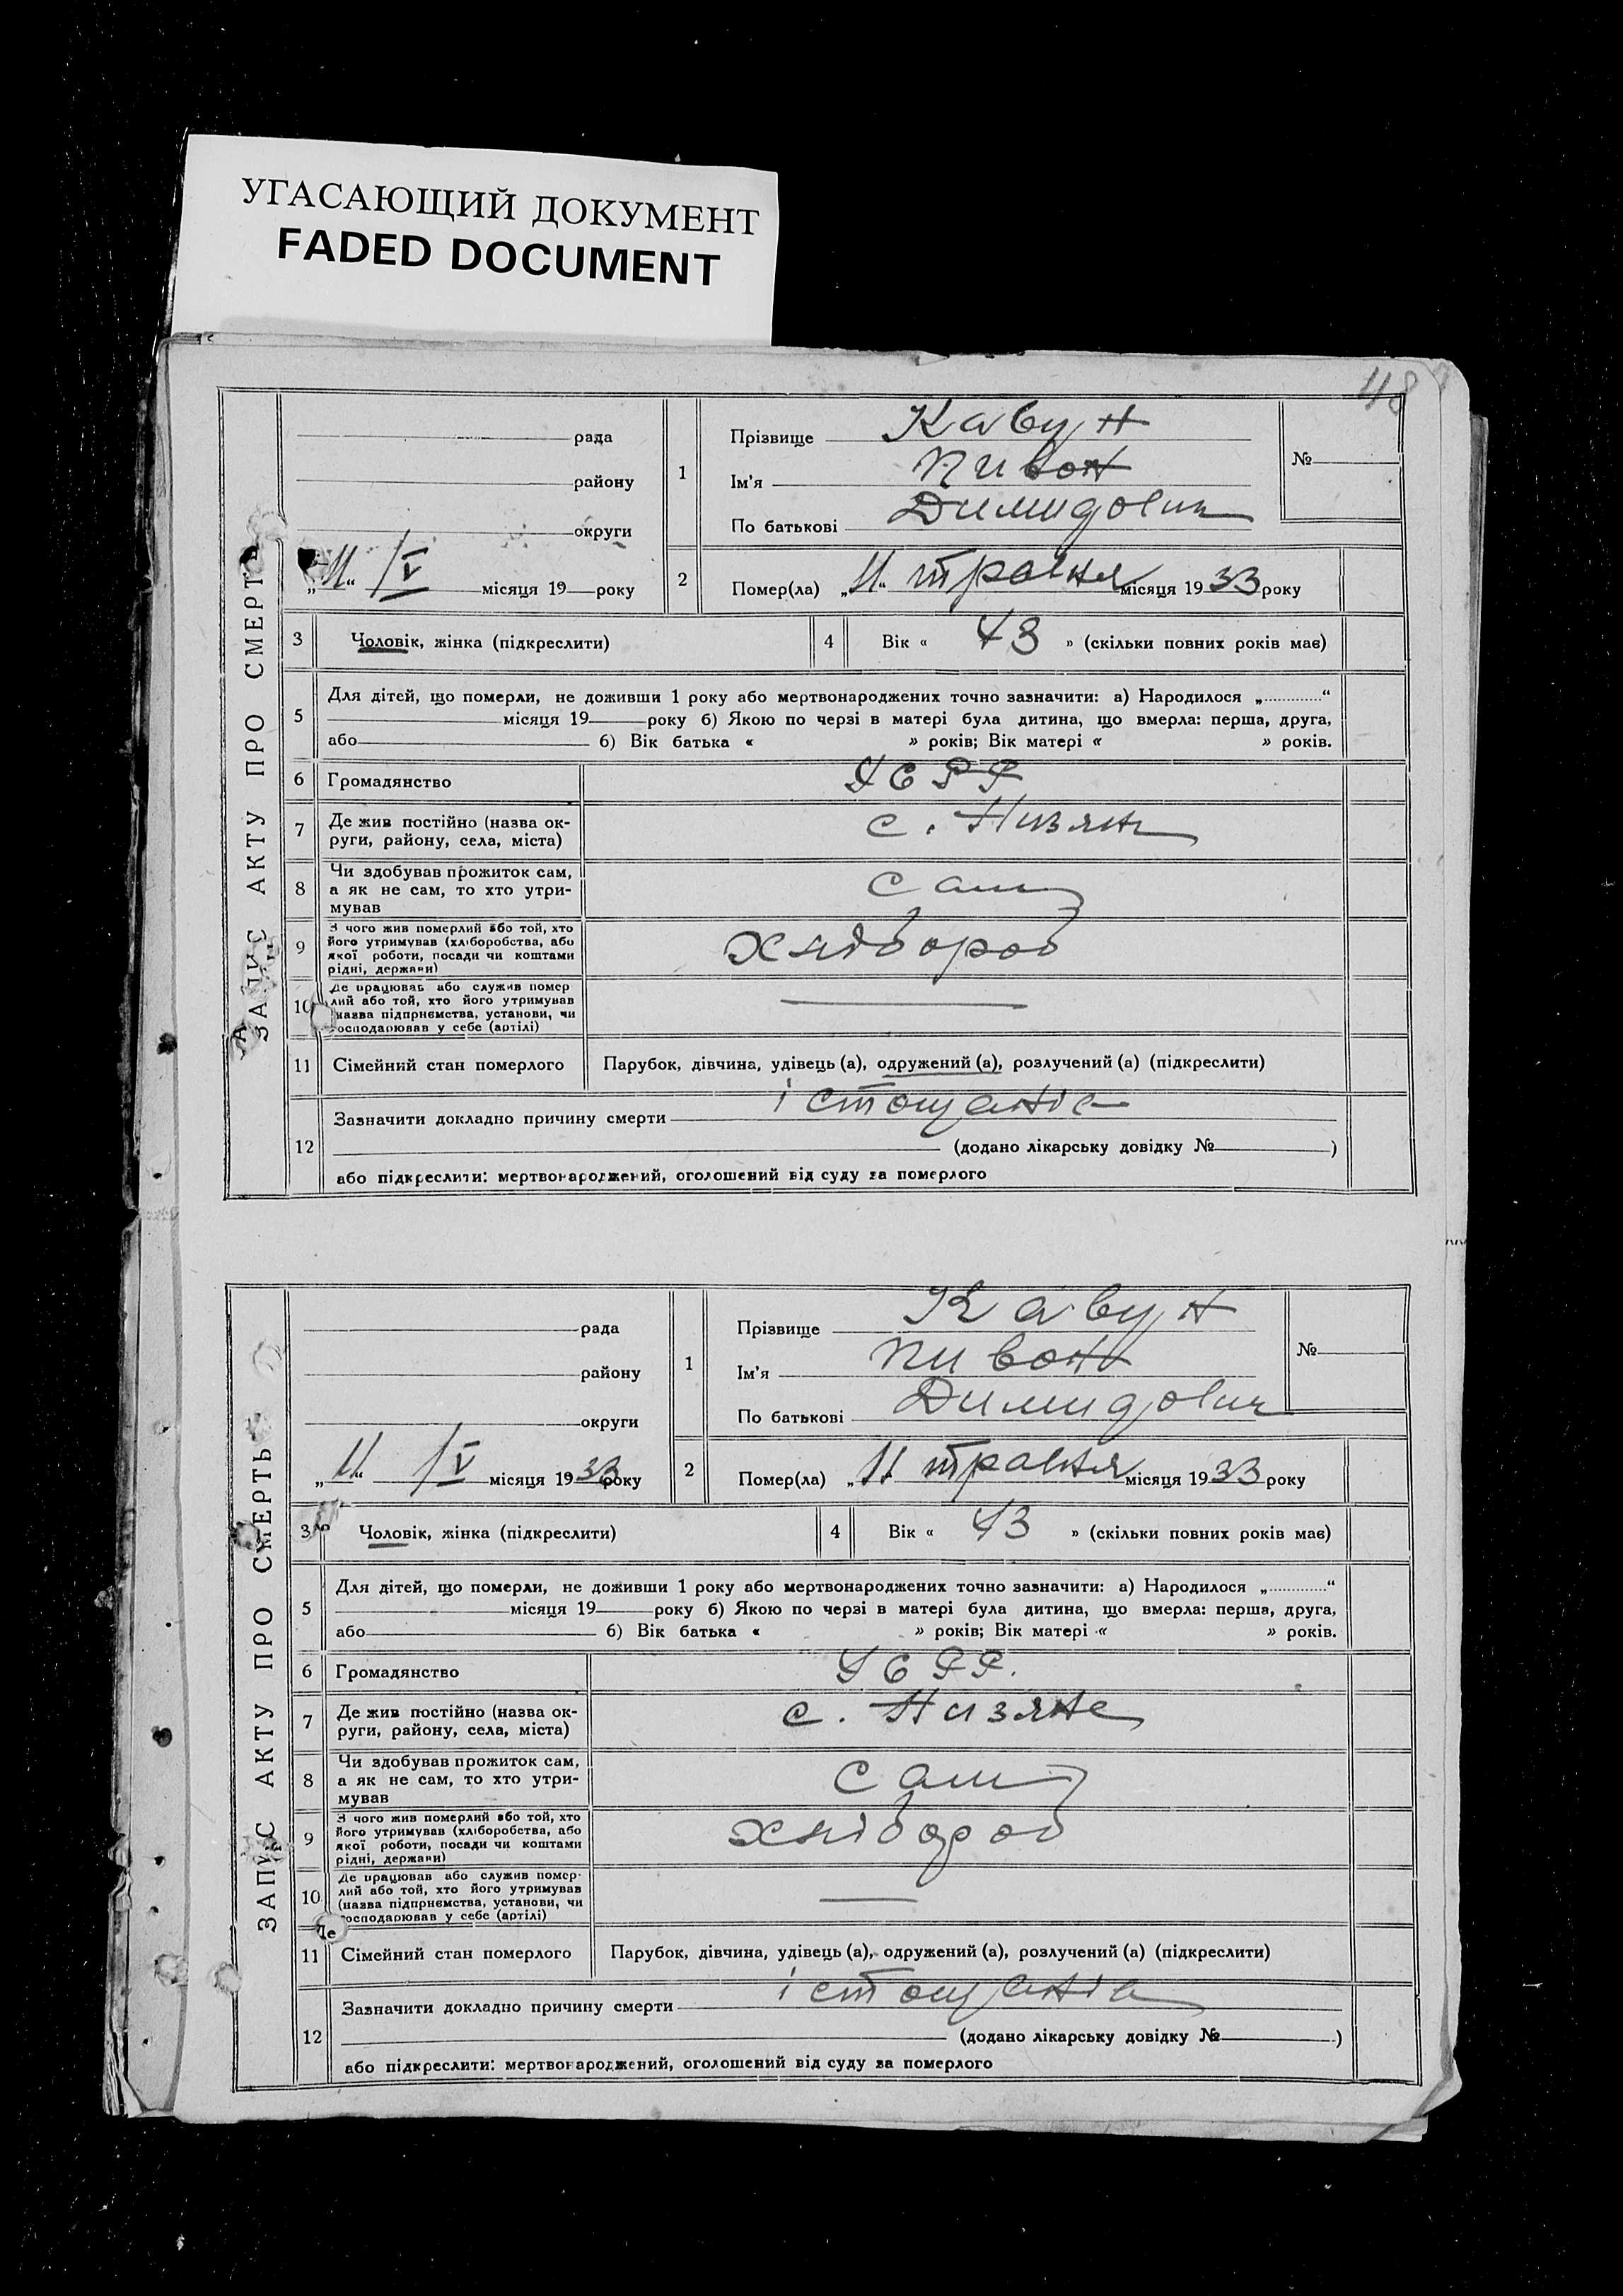 УГАСАЮЩИЙ ДОКУМЕНТ
FADED DOCUMENT
48
ЗАПИС АКТУ ПРО СМЕРТЬ
рада
району
округи
„11“ /V місяця 19 року
1
Прізвище Кавун
Ім'я Пивон
По батькові Димидович
№
2
Помер(ла) „11“ травня місяця 1933 року
3 Чоловік, жінка (підкреслити)
4 Вік « 43 » (скільки повних років має)
5
Для дітей, що померли, не доживши 1 року або мертвонароджених точно зазначити: а) Народилося „............“
місяця 19 року б) Якою по черзі в матері була дитина, що вмерла: перша, друга,
або б) Вік батька « » років; Вік матері « » років.
6 Громадянство УСРР
7 Де жив постійно (назва ок-
руги, району, села, міста)
с. Низяни
8 Чи здобував прожиток сам,
а як не сам, то хто утри-
мував
сам
9 З чого жив померлий або той, хто
його утримував (хліборобства, або
якої роботи, посади чи коштами
рідні, держави)
хлібороб
10 Де працював або служив помер
лий або той, хто його утримував
назва підприємства, установи, чи
господарював у себе (артілі)
11 Сімейний стан померлого Парубок, дівчина, удівець (а), одружений (а), розлучений (а) (підкреслити)
12
Зазначити докладно причину смерти істощаніе
(додано лікарську довідку № )
або підкреслити: мертвонароджений, оголошений від суду за померлого
ЗАПИС АКТУ ПРО СМЕРТЬ
рада
району
округи
„11“ /V місяця 1933 року
1
Прізвище Кавун
Ім'я Пивон
По батькові Димидович
№
2
Помер(ла) „11 травня місяця 1933 року
3 Чоловік, жінка (підкреслити)
4 Вік « 43 » (скільки повних років має)
5
Для дітей, що померли, не доживши 1 року або мертвонароджених точно зазначити: а) Народилося „............“
місяця 19 року б) Якою по черзі в матері була дитина, що вмерла: перша, друга,
або б) Вік батька « » років; Вік матері « » років.
6 Громадянство УСРР.
7 Де жив постійно (назва ок-
руги, району, села, міста)
с. Низяне
8 Чи здобував прожиток сам,
а як не сам, то хто утри-
мував
сам
9 З чого жив померлий або той, хто
його утримував (хліборобства, або
якої роботи, посади чи коштами
рідні, держави)
хлібороб
10 Де працював або служив помер-
лий або той, хто його утримував
(назва підприємства, установи, чи
господарював у себе (артілі)
11 Сімейний стан померлого Парубок, дівчина, удівець (а), одружений (а), розлучений (а) (підкреслити)
12
Зазначити докладно причину смерти істощаніе
(додано лікарську довідку № )
або підкреслити: мертвонароджений, оголошений від суду за померлого